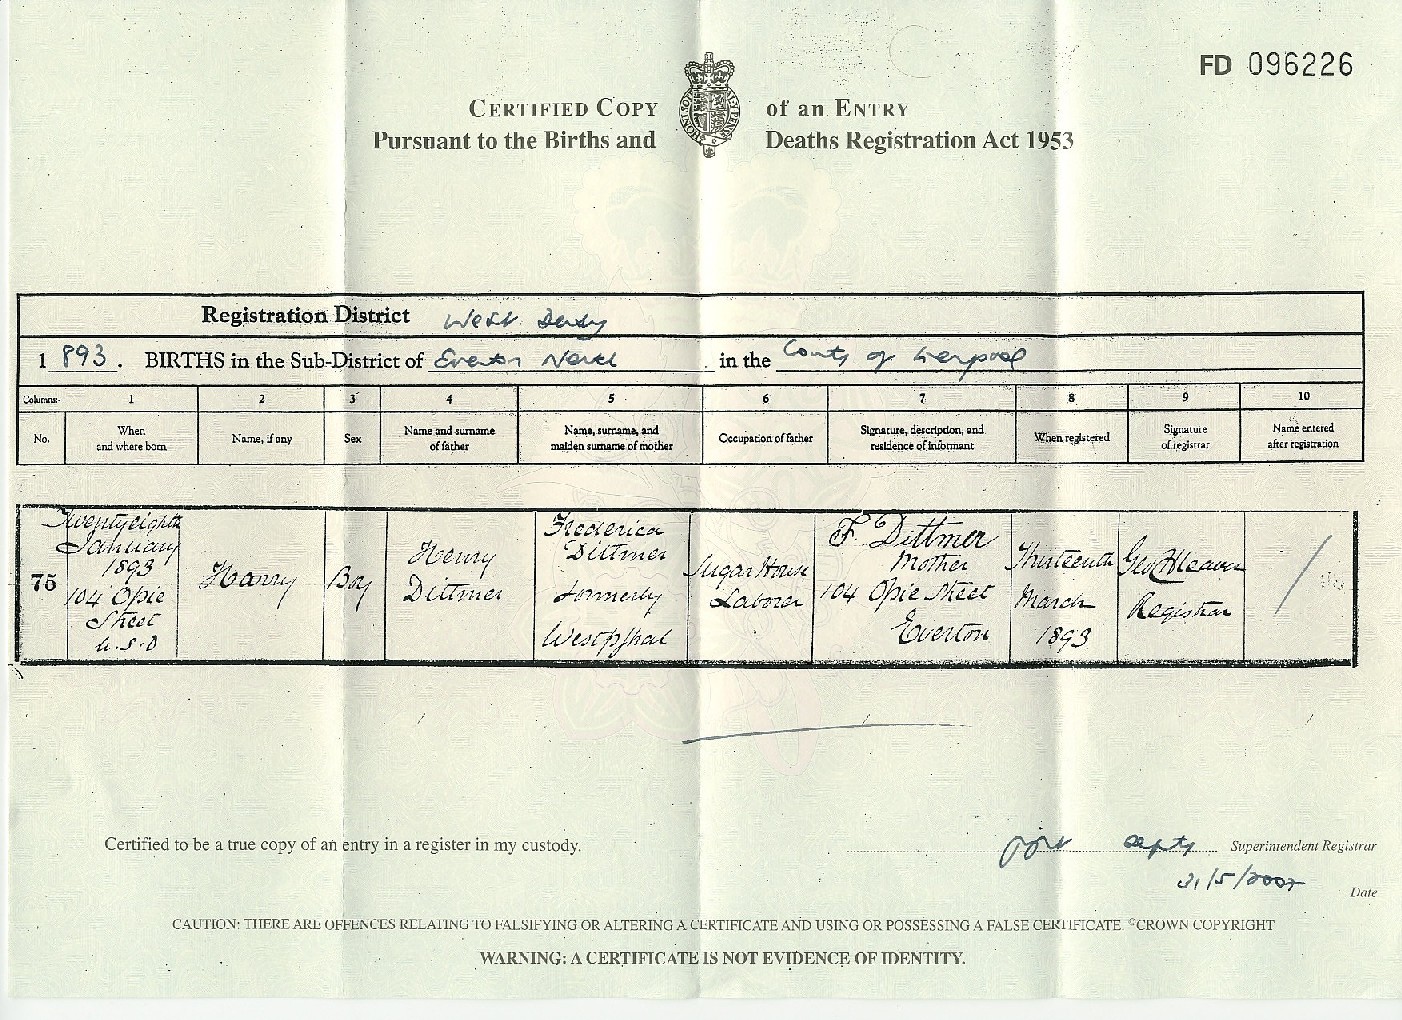 FD 096226
CERTIFIED COPY of an ENTRY
Pursuant to the Births and Deaths Registration Act 1953
Registration District West Derby
1 893. BIRTHS in the Sub-District of Everton North in the County of Liverpool
Columns:- 1 2 3 4 5 6 7 8 9 10
No. When and where born Name, if any Sex Name and surname of father Name, surname, and maiden surname of mother Occupation of father Signature, description, and residence of informant When registered Signature of registrar Name entered after registration
75
Twentyeighth
January
1893
104 Opie
Street
U.S.D
Harry
Boy
Henry
Dittmer
Frederica
Dittmer
formerly
Westphal
Sugar House
Laborer
F. Dittmer
Mother
104 Opie Street
Everton
Thirteenth
March
1893
Registrar
Certified to be a true copy of an entry in a register in my custody.
Superintendent Registrar
Date
CAUTION: THERE ARE OFFENCES RELATING TO FALSIFYING OR ALTERING A CERTIFICATE AND USING OR POSSESSING A FALSE CERTIFICATE. ©CROWN COPYRIGHT
WARNING: A CERTIFICATE IS NOT EVIDENCE OF IDENTITY.